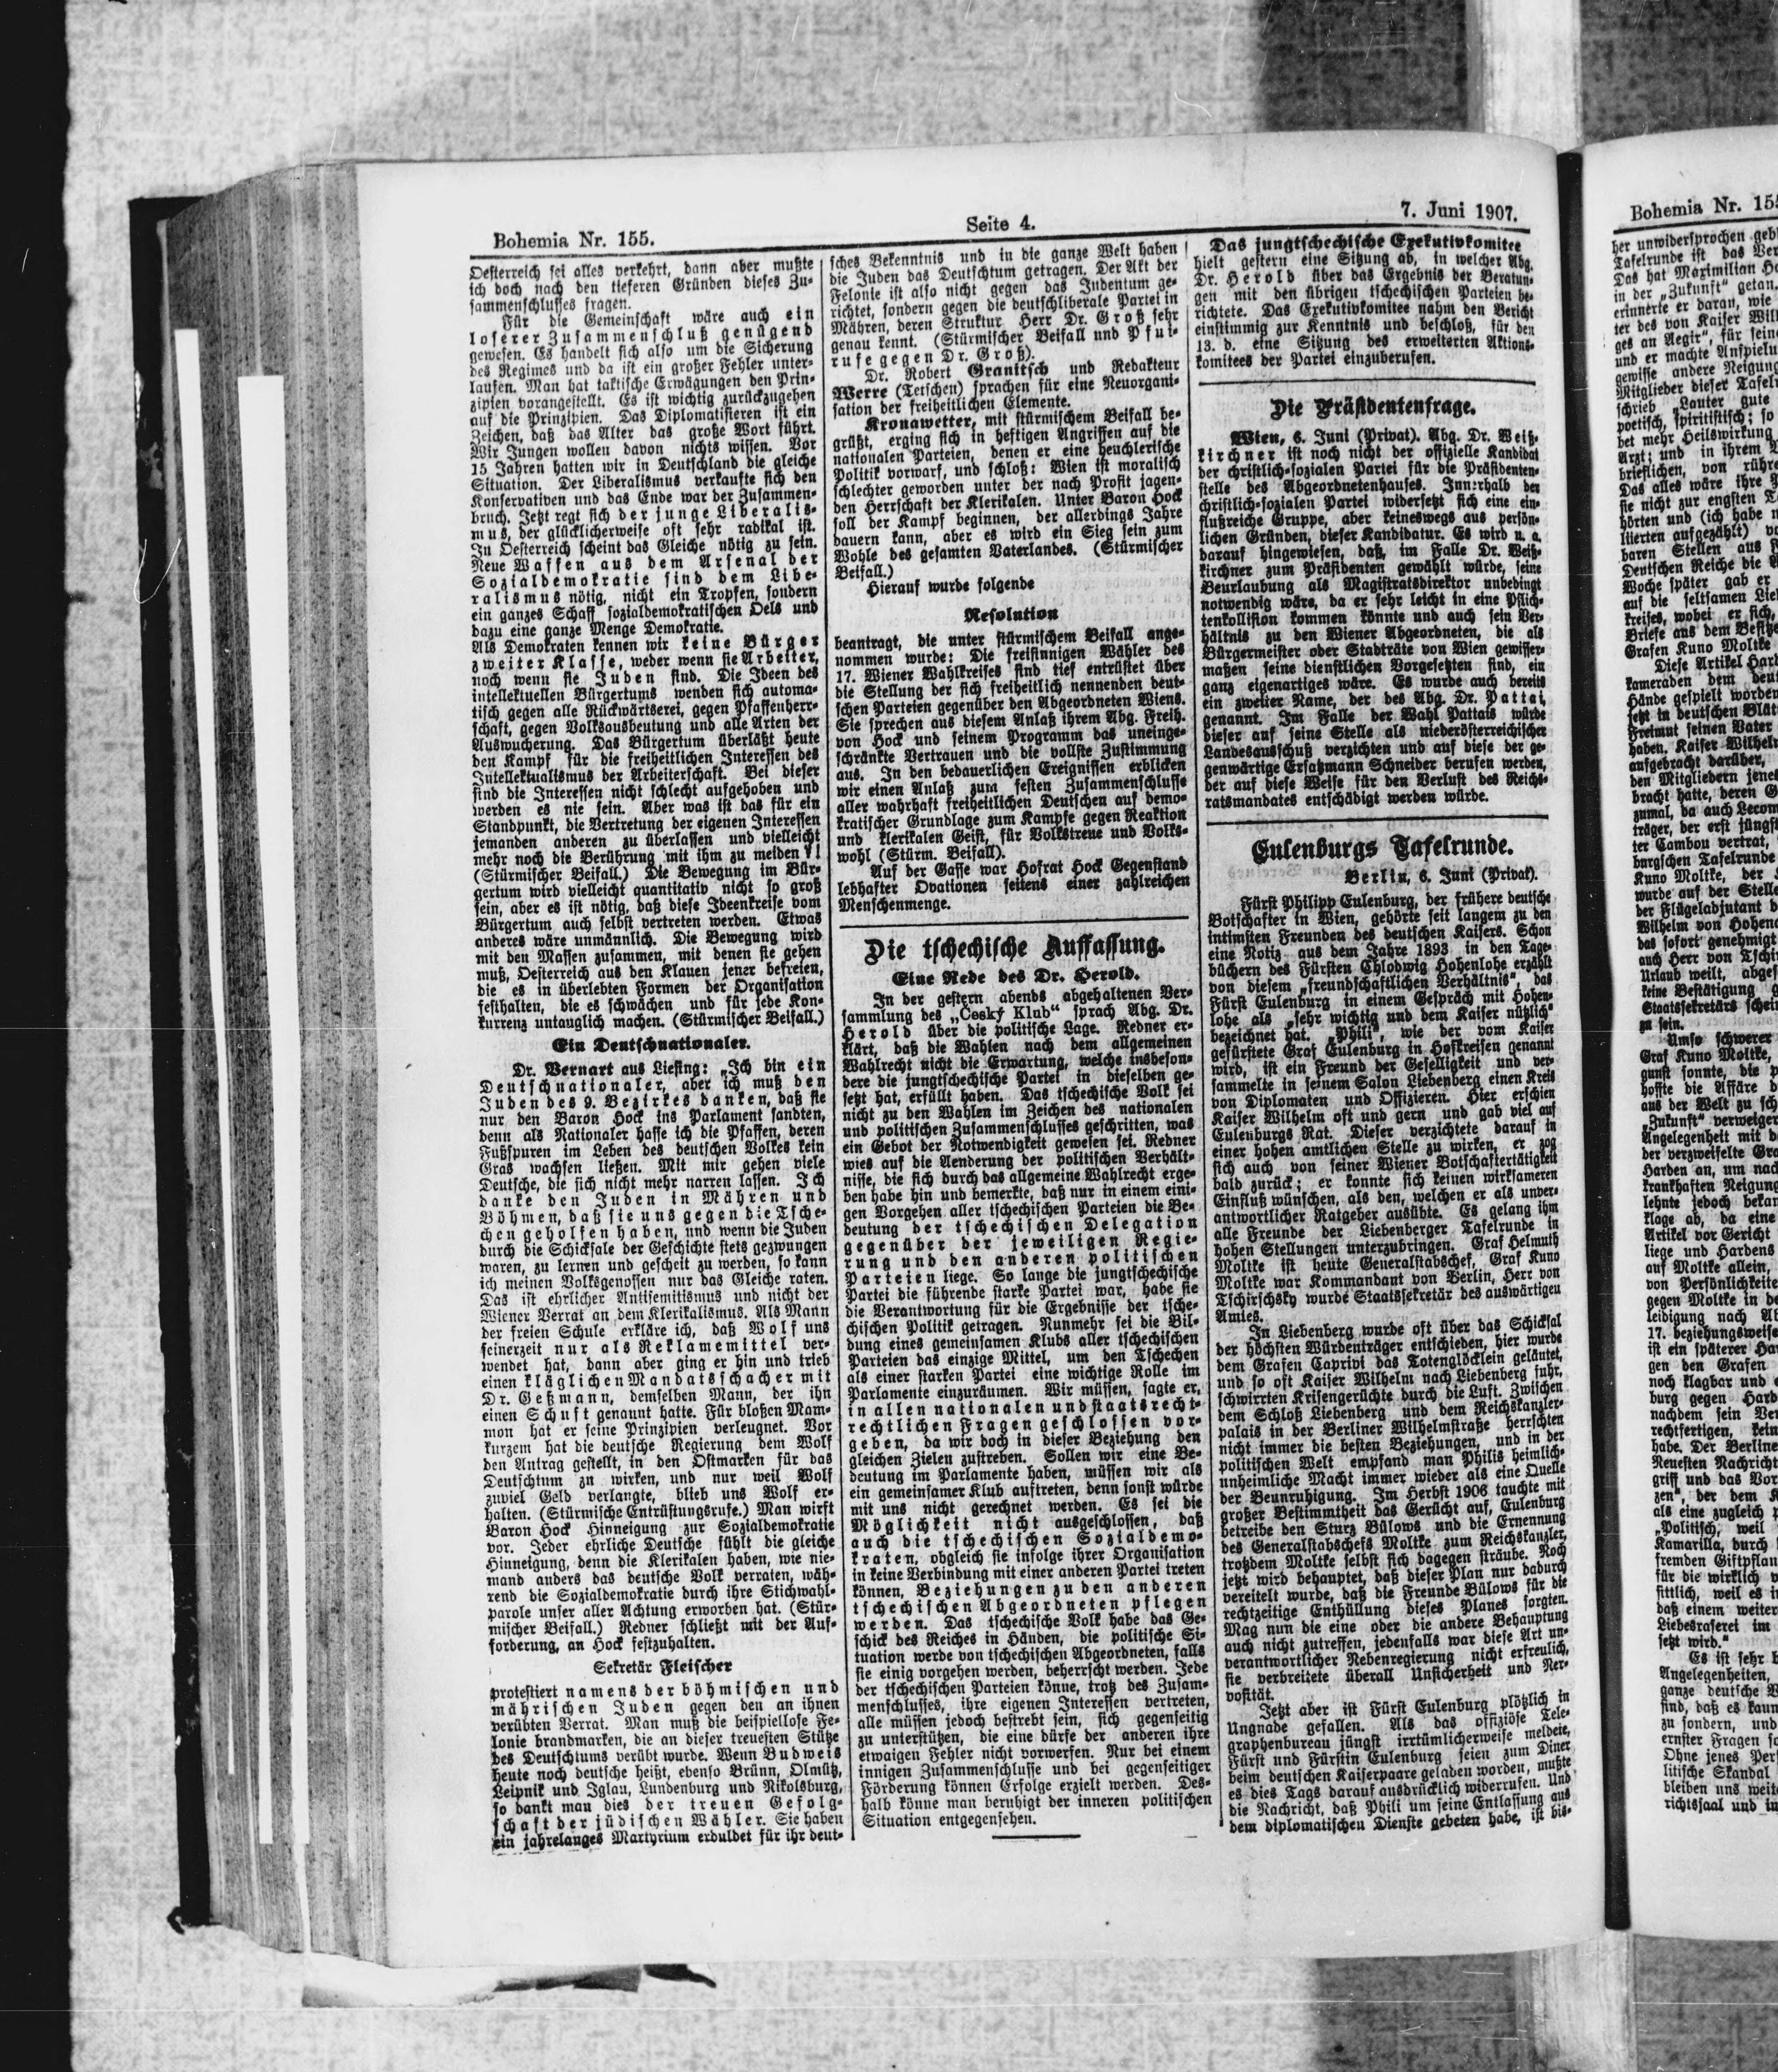 Bohemia Nr. 155.
Seite 4.
7. Juni 1907.
Oesterreich sei alles verkehrt, dann aber mußte
ich doch nach den tieferen Gründen dieses Zu-
sammenschlusses fragen.
Für die Gemeinschaft wäre auch ein
loserer Zusammenschluß genügend
gewesen. Es handelt sich also um die Sicherung
des Regimes und da ist ein großer Fehler unter-
laufen. Man hat taktische Erwägungen den Prin-
zipien vorangestellt. Es ist wichtig zurückzugehen
auf die Prinzipien. Das Diplomatisieren ist ein
Zeichen, daß das Alter das große Wort führt.
Wir Jungen wollen davon nichts wissen. Vor
15 Jahren hatten wir in Deutschland die gleiche
Situation. Der Liberalismus verkaufte sich den
Konservativen und das Ende war der Zusammen-
bruch. Jetzt regt sich der junge Liberalis-
mus, der glücklicherweise oft sehr radikal ist.
In Oesterreich scheint das Gleiche nötig zu sein.
Neue Waffen aus dem Arsenal der
Sozialdemokratie sind dem Libe-
ralismus nötig, nicht ein Tropfen, sondern
ein ganzes Schaff sozialdemokratischen Oels und
dazu eine ganze Menge Demokratie.
Als Demokraten kennen wir keine Bürger
zweiter Klasse, weder wenn sie Arbeiter,
noch wenn sie Juden sind. Die Ideen des
intellektuellen Bürgertums wenden sich automa-
tisch gegen alle Rückwärtserei, gegen Pfaffenherr-
schaft, gegen Volksausbeutung und alle Arten der
Auswucherung. Das Bürgertum überläßt heute
den Kampf für die freiheitlichen Interessen des
Intellektualismus der Arbeiterschaft. Bei dieser
sind die Interessen nicht schlecht aufgehoben und
werden es nie sein. Aber was ist das für ein
Standpunkt, die Vertretung der eigenen Interessen
jemanden anderen zu überlassen und vielleicht
mehr noch die Berührung mit ihm zu meiden?!
(Stürmischer Beifall.) Die Bewegung im Bür-
gertum wird vielleicht quantitativ nicht so groß
sein, aber es ist nötig, daß diese Ideenkreise vom
Bürgertum auch selbst vertreten werden. Etwas
anderes wäre unmännlich. Die Bewegung wird
mit den Massen zusammen, mit denen sie gehen
muß, Oesterreich aus den Klauen jener befreien,
die es in überlebten Formen der Organisation
festhalten, die es schwächen und für jede Kon-
kurrenz untauglich machen. (Stürmischer Beifall.)
Ein Deutschnationaler.
Dr. Vernart aus Liesing: „Ich bin ein
Deutschnationaler, aber ich muß den
Juden des 9. Bezirkes danken, daß sie
nur den Baron Hock ins Parlament sandten,
denn als Nationaler hasse ich die Pfaffen, deren
Fußspuren im Leben des deutschen Volkes kein
Gras wachsen ließen. Mit mir gehen viele
Deutsche, die sich nicht mehr narren lassen. Ich
danke den Juden in Mähren und
Böhmen, daß sie uns gegen die Tsche-
chen geholfen haben, und wenn die Juden
durch die Schicksale der Geschichte stets gezwungen
waren, zu lernen und gescheit zu werden, so kann
ich meinen Volksgenossen nur das Gleiche raten.
Das ist ehrlicher Antisemitismus und nicht der
Wiener Verrat an dem Klerikalismus. Als Mann
der freien Schule erkläre ich, daß Wolf uns
seinerzeit nur als Reklamemittel ver-
wendet hat, dann aber ging er hin und trieb
einen kläglichen Mandatsschacher mit
Dr. Geßmann, demselben Mann, der ihn
einen Schuft genannt hatte. Für bloßen Mam-
mon hat er seine Prinzipien verleugnet. Vor
kurzem hat die deutsche Regierung dem Wolf
den Antrag gestellt, in den Ostmarken für das
Deutschtum zu wirken, und nur weil Wolf
zuviel Geld verlangte, blieb uns Wolf er-
halten. (Stürmische Entrüstungsrufe.) Man wirft
Baron Hock Hinneigung zur Sozialdemokratie
vor. Jeder ehrliche Deutsche fühlt die gleiche
Hinneigung, denn die Klerikalen haben, wie nie-
mand anders das deutsche Volk verraten, wäh-
rend die Sozialdemokratie durch ihre Stichwahl-
parole unser aller Achtung erworben hat. (Stür-
mischer Beifall.) Redner schließt mit der Auf-
forderung, an Hock festzuhalten.
Sekretär Fleischer
protestiert namens der böhmischen und
mährischen Juden gegen den an ihnen
verübten Verrat. Man muß die beispiellose Fe-
lonie brandmarken, die an dieser treuesten Stütze
des Deutschtums verübt wurde. Wenn Budweis
heute noch deutsche heißt, ebenso Brünn, Olmütz,
Leipnik und Iglau, Lundenburg und Nikolsburg,
so dankt man dies der treuen Gefolg-
schaft der jüdischen Wähler. Sie haben
ein jahrelanges Martyrium erduldet für ihr deut-
sches Bekenntnis und in die ganze Welt haben
die Juden das Deutschtum getragen. Der Akt der
Felonie ist also nicht gegen das Judentum ge-
richtet, sondern gegen die deutschliberale Partei in
Mähren, deren Struktur Herr Dr. Groß sehr
genau kennt. (Stürmischer Beifall und Pfui-
rufe gegen Dr. Groß).
Dr. Robert Granitsch und Redakteur
Werre (Tetschen) sprachen für eine Neuorgani-
sation der freiheitlichen Elemente.
Kronawetter, mit stürmischem Beifall be-
grüßt, erging sich in heftigen Angriffen auf die
nationalen Parteien, denen er eine heuchlerische
Politik vorwarf, und schloß: Wien ist moralisch
schlechter geworden unter der nach Profit jagen-
den Herrschaft der Klerikalen. Unter Baron Hock
soll der Kampf beginnen, der allerdings Jahre
dauern kann, aber es wird ein Sieg sein zum
Wohle des gesamten Vaterlandes. (Stürmischer
Beifall.)
Hierauf wurde folgende
Resolution
beantragt, die unter stürmischem Beifall ange-
nommen wurde: Die freisinnigen Wähler des
17. Wiener Wahlkreises sind tief entrüstet über
die Stellung der sich freiheitlich nennenden deut-
schen Parteien gegenüber den Abgeordneten Wiens.
Sie sprechen aus diesem Anlaß ihrem Abg. Freih.
von Hock und seinem Programm das uneinge-
schränkte Vertrauen und die vollste Zustimmung
aus. In den bedauerlichen Ereignissen erblicken
wir einen Anlaß zum festen Zusammenschlusse
aller wahrhaft freiheitlichen Deutschen auf demo-
kratischer Grundlage zum Kampfe gegen Reaktion
und klerikalen Geist, für Volkstreue und Volks-
wohl (Stürm. Beifall).
Auf der Gasse war Hofrat Hock Gegenstand
lebhafter Ovationen seitens einer zahlreichen
Menschenmenge.
Die tschechische Auffassung.
Eine Rede des Dr. Herold.
In der gestern abends abgehaltenen Ver-
sammlung des „Český Klub“ sprach Abg. Dr.
Herold über die politische Lage. Redner er-
klärt, daß die Wahlen nach dem allgemeinen
Wahlrecht nicht die Erwartung, welche insbeson-
dere die jungtschechische Partei in dieselben ge-
setzt hat, erfüllt haben. Das tschechische Volk sei
nicht zu den Wahlen im Zeichen des nationalen
und politischen Zusammenschlusses geschritten, was
ein Gebot der Notwendigkeit gewesen sei. Redner
wies auf die Aenderung der politischen Verhält-
nisse, die sich durch das allgemeine Wahlrecht erge-
ben habe hin und bemerkte, daß nur in einem eini-
gen Vorgehen aller tschechischen Parteien die Be-
deutung der tschechischen Delegation
gegenüber der jeweiligen Regie-
rung und den anderen politischen
Parteien liege. So lange die jungtschechische
Partei die führende starke Partei war, habe sie
die Verantwortung für die Ergebnisse der tsche-
chischen Politik getragen. Nunmehr sei die Bil-
dung eines gemeinsamen Klubs aller tschechischen
Parteien das einzige Mittel, um den Tschechen
als einer starken Partei eine wichtige Rolle im
Parlamente einzuräumen. Wir müssen, sagte er,
in allen nationalen und staatsrecht-
rechtlichen Fragen geschlossen vor-
geben, da wir doch in dieser Beziehung den
gleichen Zielen zustreben. Sollen wir eine Be-
deutung im Parlamente haben, müssen wir als
ein gemeinsamer Klub auftreten, denn sonst würde
mit uns nicht gerechnet werden. Es sei die
Möglichkeit nicht ausgeschlossen, daß
auch die tschechischen Sozialdemo-
kraten, obgleich sie infolge ihrer Organisation
in keine Verbindung mit einer anderen Partei treten
können, Beziehungen zu den anderen
tschechischen Abgeordneten pflegen
werden. Das tschechische Volk habe das Ge-
schick des Reiches in Händen, die politische Si-
tuation werde von tschechischen Abgeordneten, falls
sie einig vorgehen werden, beherrscht werden. Jede
der tschechischen Parteien könne, trotz des Zusam-
menschlusses, ihre eigenen Interessen vertreten,
alle müssen jedoch bestrebt sein, sich gegenseitig
zu unterstützen, die eine dürfe der anderen ihre
etwaigen Fehler nicht vorwerfen. Nur bei einem
innigen Zusammenschlusse und bei gegenseitiger
Förderung können Erfolge erzielt werden. Des-
halb könne man beruhigt der inneren politischen
Situation entgegensehen.
Das jungtschechische Exekutivkomitee
hielt gestern eine Sitzung ab, in welcher Abg.
Dr. Herold über das Ergebnis der Beratun-
gen mit den übrigen tschechischen Parteien be-
richtete. Das Exekutivkomitee nahm den Bericht
einstimmig zur Kenntnis und beschloß, für den
13. d. eine Sitzung des erweiterten Aktions-
komitees der Partei einzuberufen.
Die Präsidentenfrage.
Wien, 6. Juni (Privat). Abg. Dr. Weiß-
kirchner ist noch nicht der offizielle Kandidat
der christlich-sozialen Partei für die Präsidenten-
stelle des Abgeordnetenhauses. Innerhalb der
christlich-sozialen Partei widersetzt sich eine ein-
flußreiche Gruppe, aber keineswegs aus persön-
lichen Gründen, dieser Kandidatur. Es wird u. a.
darauf hingewiesen, daß, im Falle Dr. Weiß-
kirchner zum Präsidenten gewählt würde, seine
Beurlaubung als Magistratsdirektor unbedingt
notwendig wäre, da er sehr leicht in eine Pflich-
tenkollision kommen könnte und auch sein Ver-
hältnis zu den Wiener Abgeordneten, die als
Bürgermeister oder Stadträte von Wien gewisser-
maßen seine dienstlichen Vorgesetzten sind, ein
ganz eigenartiges wäre. Es wurde auch bereits
ein zweiter Name, der des Abg. Dr. Pattai,
genannt. Im Falle der Wahl Pattais würde
dieser auf seine Stelle als niederösterreichischer
Landesausschuß verzichten und auf diese der ge-
genwärtige Ersatzmann Schneider berufen werden,
der auf diese Weise für den Verlust des Reichs-
ratsmandates entschädigt werden würde.
Eulenburgs Tafelrunde.
Berlin, 6. Juni (Privat).
Fürst Philipp Eulenburg, der frühere deutsche
Botschafter in Wien, gehörte seit langem zu den
intimsten Freunden des deutschen Kaisers. Schon
eine Notiz aus dem Jahre 1893 in den Tage-
büchern des Fürsten Chlodwig Hohenlohe erzählt
von diesem „freundschaftlichen Verhältnis“, das
Fürst Eulenburg in einem Gespräch mit Hohen-
lohe als „sehr wichtig und dem Kaiser nützlich“
bezeichnet hat. „Phili“, wie der vom Kaiser
gefürstete Graf Eulenburg in Hofkreisen genannt
wird, ist ein Freund der Geselligkeit und ver-
sammelte in seinem Salon Liebenberg einen Kreis
von Diplomaten und Offizieren. Hier erschien
Kaiser Wilhelm oft und gern und gab viel auf
Eulenburgs Rat. Dieser verzichtete darauf in
einer hohen amtlichen Stelle zu wirken, er zog
sich auch von seiner Wiener Botschaftertätigkeit
bald zurück; er konnte sich keinen wirksameren
Einfluß wünschen, als den, welchen er als unver-
antwortlicher Ratgeber ausübte. Es gelang ihm
alle Freunde der Liebenberger Tafelrunde in
hohen Stellungen unterzubringen. Graf Helmuth
Moltke ist heute Generalstabschef, Graf Kuno
Moltke war Kommandant von Berlin, Herr von
Tschirschky wurde Staatssekretär des auswärtigen
Amtes.
In Liebenberg wurde oft über das Schicksal
der höchsten Würdenträger entschieden, hier wurde
dem Grafen Caprivi das Totenglöcklein geläutet,
und so oft Kaiser Wilhelm nach Liebenberg fuhr,
schwirrten Krisengerüchte durch die Luft. Zwischen
dem Schloß Liebenberg und dem Reichskanzler-
palais in der Berliner Wilhelmstraße herrschten
nicht immer die besten Beziehungen, und in der
politischen Welt empfand man Philis heimlich-
unheimliche Macht immer wieder als eine Quelle
der Beunruhigung. Im Herbst 1906 tauchte mit
großer Bestimmtheit das Gerücht auf, Eulenburg
betreibe den Sturz Bülows und die Ernennung
des Generalstabschefs Moltke zum Reichskanzler,
trotzdem Moltke selbst sich dagegen sträube. Noch
jetzt wird behauptet, daß dieser Plan nur dadurch
vereitelt wurde, daß die Freunde Bülows für die
rechtzeitige Enthüllung dieses Planes sorgten.
Mag nun die eine oder die andere Behauptung
auch nicht zutreffen, jedenfalls war diese Art un-
verantwortlicher Nebenregierung nicht erfreulich,
sie verbreitete überall Unsicherheit und Ner-
vosität.
Jetzt aber ist Fürst Eulenburg plötzlich in
Ungnade gefallen. Als das offiziöse Tele-
graphenbureau jüngst irrtümlicherweise meldete,
Fürst und Fürstin Eulenburg seien zum Diner
beim deutschen Kaiserpaare geladen worden, mußte
es dies Tags darauf ausdrücklich widerrufen. Und
die Nachricht, daß Phili um seine Entlassung aus
dem diplomatischen Dienste gebeten habe, ist bis-
Bohemia Nr. 155
her unwidersprochen
Tafelrunde ist das
Das hat Maximilian
in der „Zukunft“ getan.
erinnerte er daran, wie
ter des von Kaiser
ges an Aegir“, für
und er machte
gewisse andere
Mitglieder dieser
schrieb „Lauter gute
poetisch, spiritistisch; so
det mehr Heilswirkung
Arzt; und in ihrem
brieflichen, von
Das alles wäre ihre
sie nicht zur engsten
hörten und (ich habe
liierten aufgezählt)
baren Stellen aus
Deutschen Reiche die
Woche später gab er
auf die seltsamen
kreises, wobei er sich,
Briefe aus dem
Grafen Kuno Moltke
Diese Artikel
kameraden dem
Hände gespielt worden
jetzt in deutschen
Freimut seinen Vater
haben. Kaiser
aufgebracht darüber,
den Mitgliedern
bracht hatte, deren
zumal, da auch
träger, der erst
ter Cambou vertrat,
burgschen Tafelrunde
Kuno Moltke, der
wurde auf der Stelle
der Flügeladjutant
Wilhelm von
das sofort genehmigt
auch Herr von
Urlaub weilt,
keine Bestätigung
Staatssekretärs
zu sein.
Umso schwerer
Graf Kuno Moltke,
gunst sonnte, die
hoffte die Affäre
aus der Welt zu
„Zukunft“
Angelegenheit mit
der verzweifelte
Harden an, um
krankhaften
lehnte jedoch
klage ab, da eine
Artikel vor Gericht
liege und Hardens
auf Moltke allein,
von
gegen Moltke in
leidigung nach
17. beziehungsweise
ist ein späterer
gen den Grafen
noch klagbar und
burg gegen
nachdem sein
rechtfertigen,
habe. Der
Neuesten
griff und das
zen“, der dem
als eine zugleich
„Politisch, weil
Kamarilla, durch
fremden
für die wirklich
sittlich, weil es
daß einem
Liebesraserei im
setzt wird.“
Es ist sehr
Angelegenheiten,
ganze deutsche
sind, daß es
zu sondern, und
ernster Fragen
Ohne jenes
litische Skandal
bleiben uns
richtssaal und